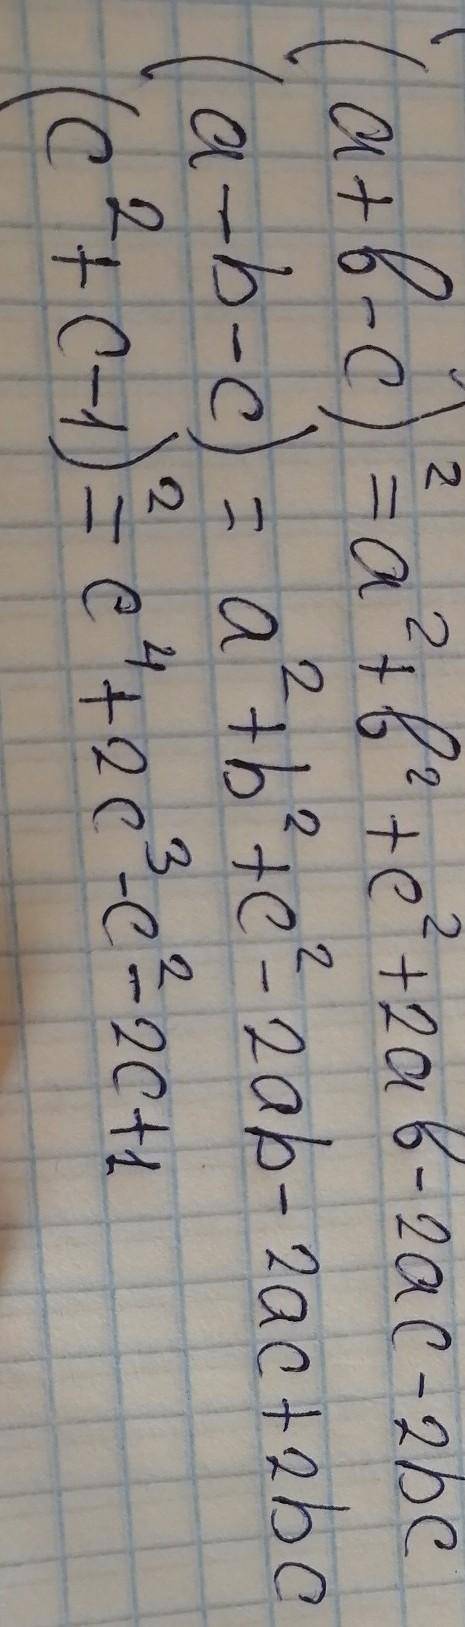 (a+b-c)² = a²+b²+c²+2ab-2ac-2bc
(a-b-c) = a²+b²+c²-2ab-2ac+2bc
(c²+c-1)² = c⁴+2c³-c²-2c+1